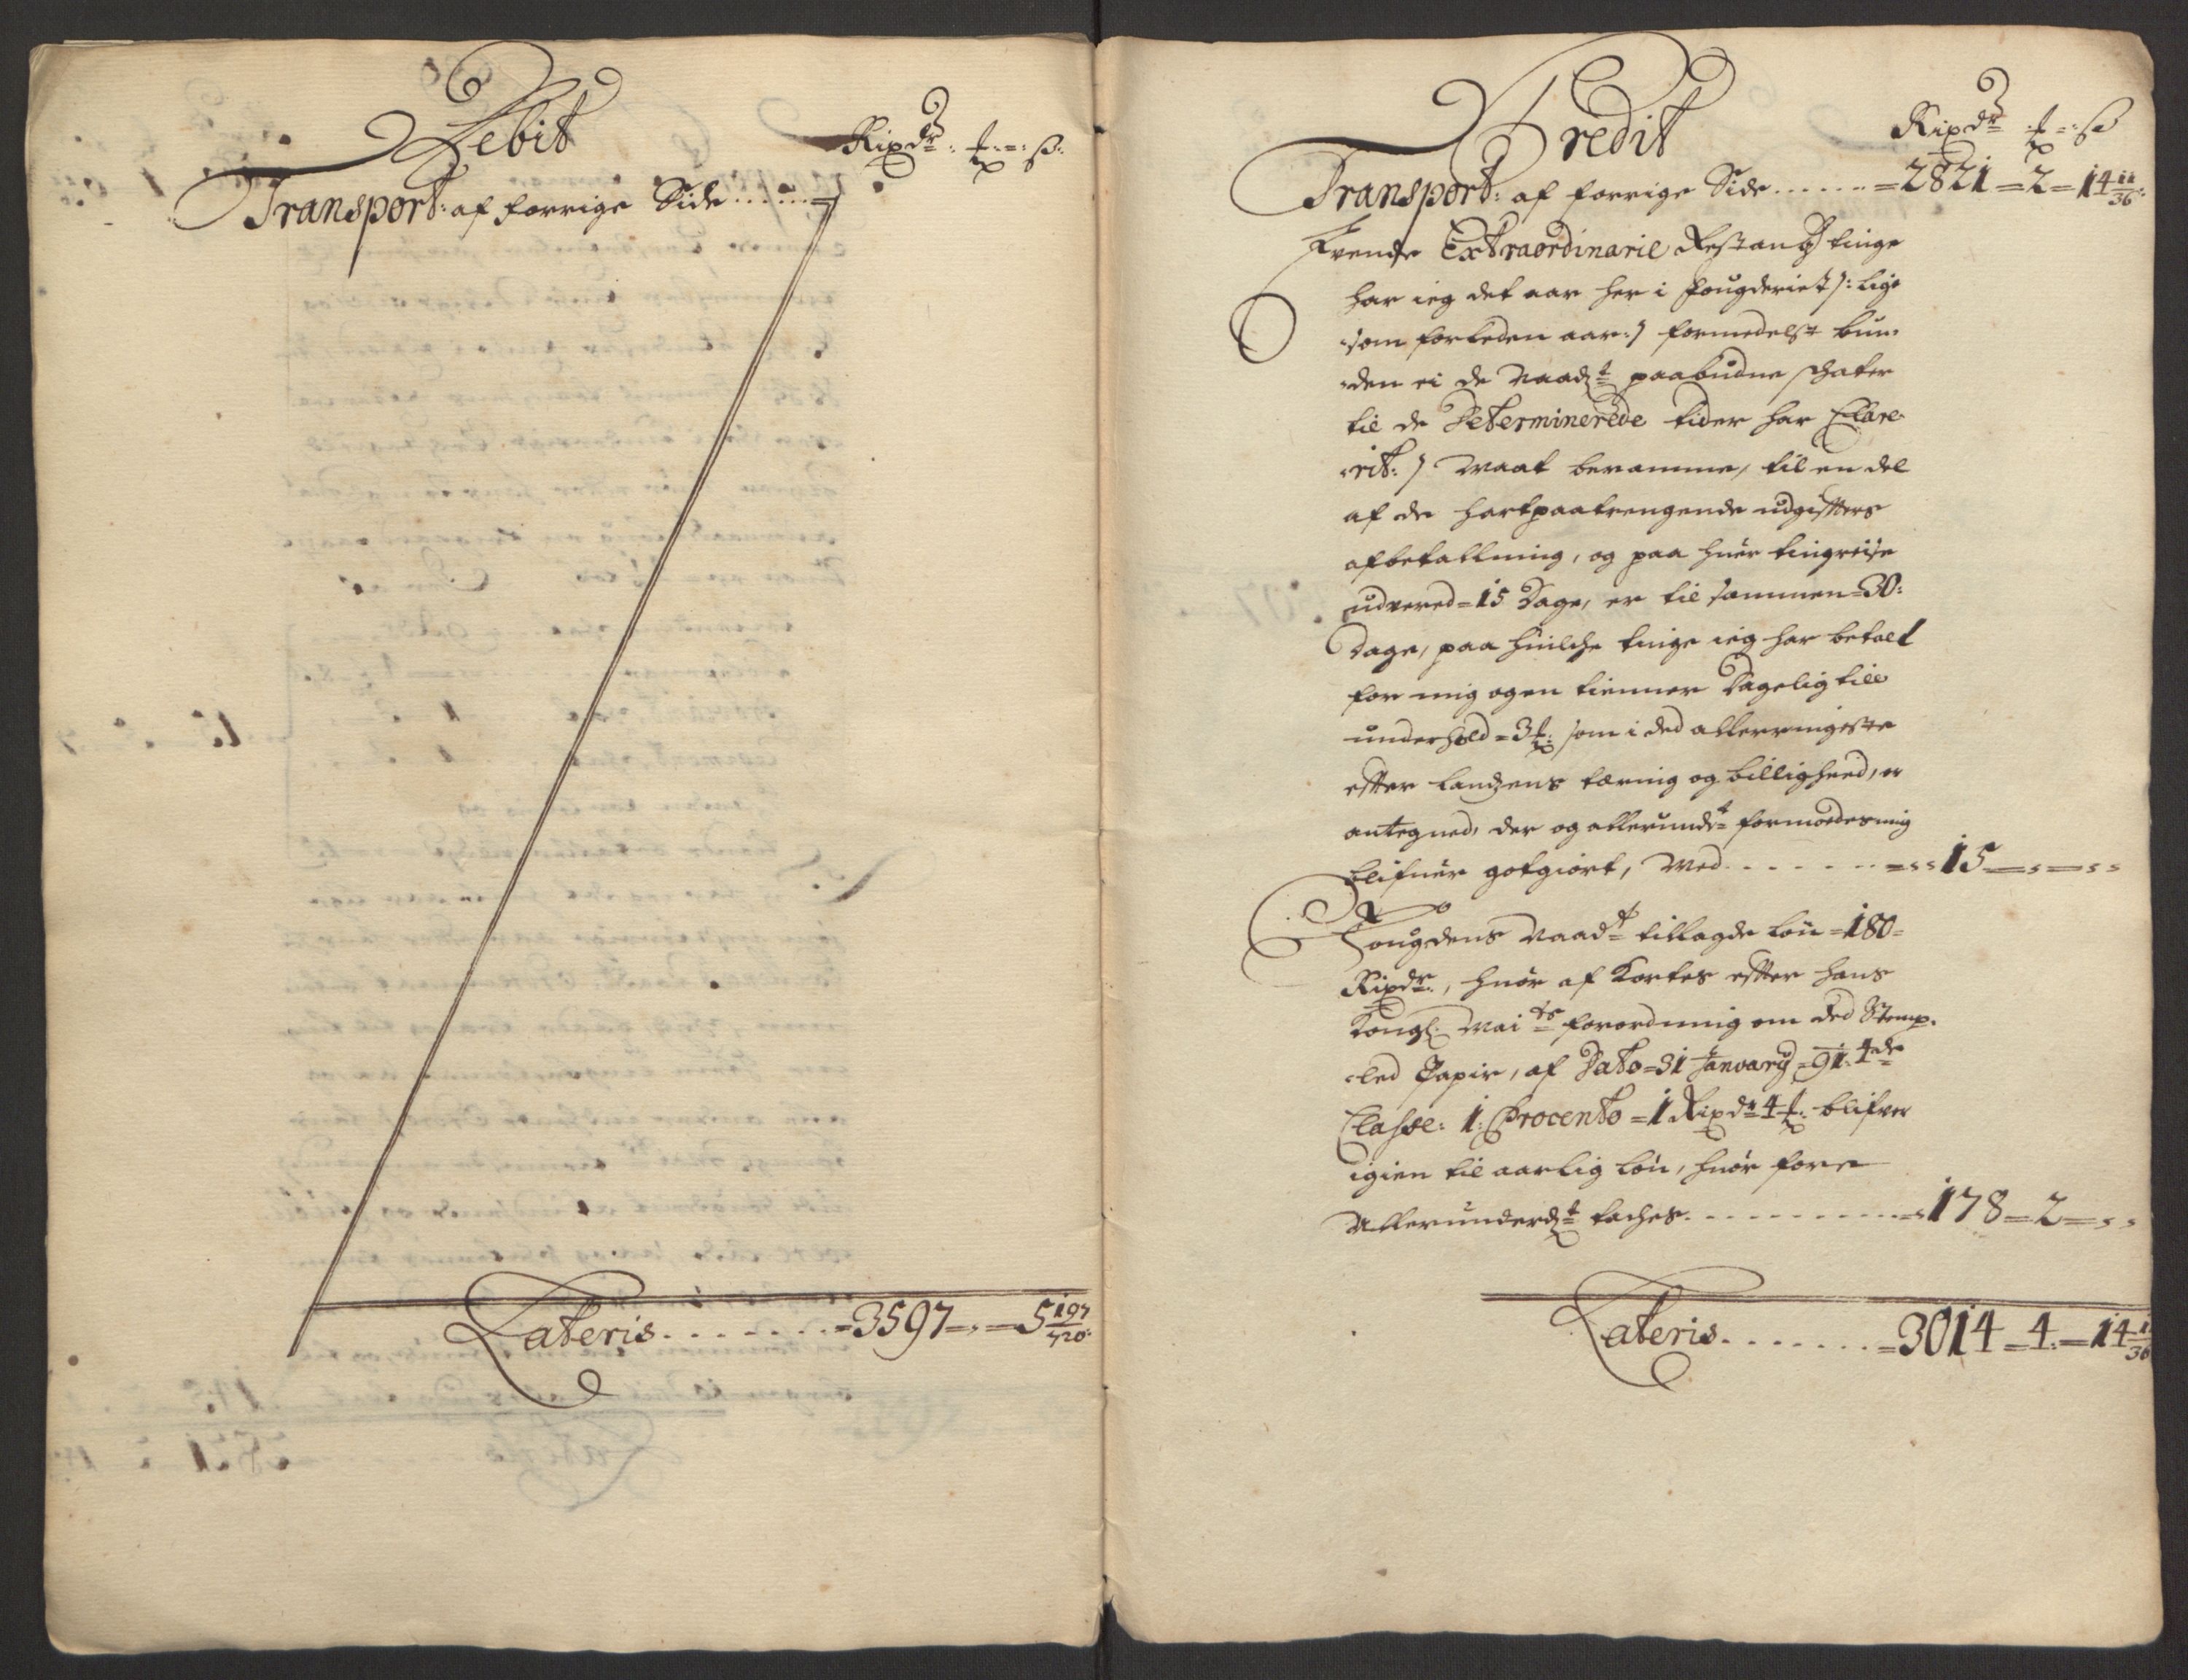 Debit
Ripdr: ꝛ: ß:
Transport: af forrige Side ......
Lateris. . . . . . . =3597=,=5 197/720:
Credit
Ripdr ꝛ =: ß
Transport: af forrige Side ...... =2821=2=14 11/36:
Tvende Extraordinarie Restantz tinge
har ieg det aar her i fougderiet /: lige
som forleden aar :/ formedelst bun-
den ei de Naadt paabudne schater
til de Determinerede tider har Clare-
rit: / Maat beramme, til en del
af de hartpaatrengende udgiffters
afbetallning, og paa huer tingreise
udvered=15 Dage, er til sammen=30:
Dage, paa huilche tinge ieg har betalt
for mig og en tienner Dagelig till
underhold=3ꝛ: som i ded allerringeste
effter landzens tæring og billigheed, er
antegned, der og allerundt formoedes mig
blifuer gotgiort, Med . . . . . . . =,,15=,=,,
Fougdens Naadt tillagde løn =180=
Ripdr., huor af Kortes effter hans
Kongl. Maits forordning om ded Stemp-
led Papir, af Dato=31 January=91. 4de
Classe: 1. Procento =1 Ripdr 4ꝛ: blifver
igien til aarlig løn, huor fore
Allerunderdt taches. . . . . . . . . . . =178=2=,,
Lateris. . . . . . . =3014=4.=14 1/36